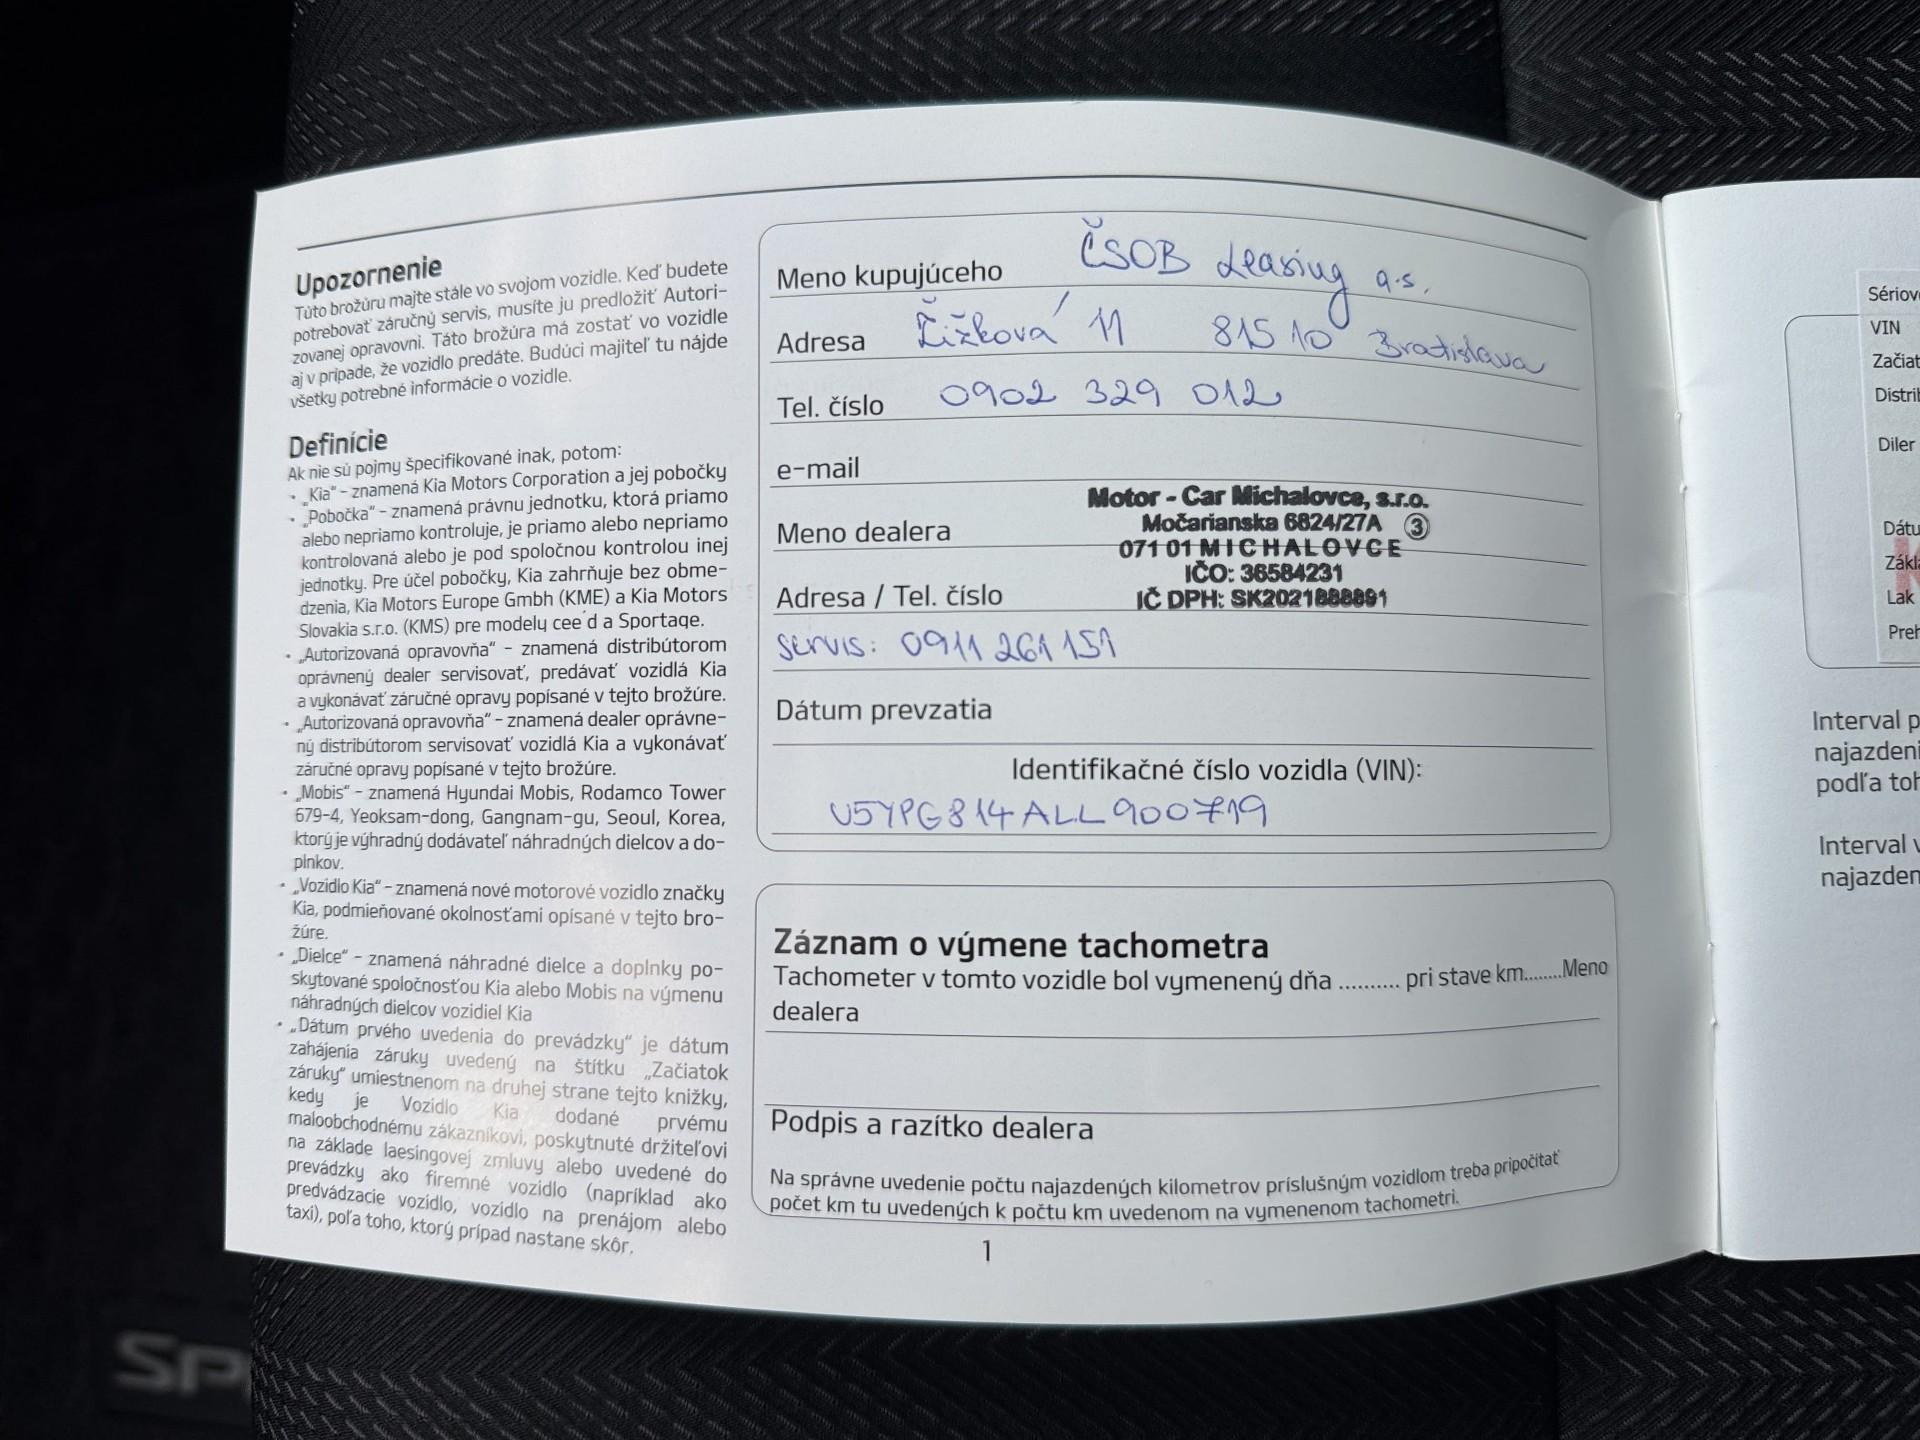 Upozornenie
Túto brožúru majte stále vo svojom vozidle. Keď budete
potrebovať záručný servis, musíte ju predložiť Autori-
zovanej opravovni. Táto brožúra má zostať vo vozidle
aj v prípade, že vozidlo predáte. Budúci majiteľ tu nájde
všetky potrebné informácie o vozidle.
Definície
Ak nie sú pojmy špecifikované inak, potom:
• „Kia“ – znamená Kia Motors Corporation a jej pobočky
• „Pobočka“ – znamená právnu jednotku, ktorá priamo
alebo nepriamo kontroluje, je priamo alebo nepriamo
kontrolovaná alebo je pod spoločnou kontrolou inej
jednotky. Pre účel pobočky, Kia zahrňuje bez obme-
dzenia, Kia Motors Europe Gmbh (KME) a Kia Motors
Slovakia s.r.o. (KMS) pre modely cee´d a Sportage.
• „Autorizovaná opravovňa“ – znamená distribútorom
oprávnený dealer servisovať, predávať vozidlá Kia
a vykonávať záručné opravy popísané v tejto brožúre.
• „Autorizovaná opravovňa“ – znamená dealer oprávne-
ný distribútorom servisovať vozidlá Kia a vykonávať
záručné opravy popísané v tejto brožúre.
• „Mobis“ – znamená Hyundai Mobis, Rodamco Tower
679-4, Yeoksam-dong, Gangnam-gu, Seoul, Korea,
ktorý je výhradný dodávateľ náhradných dielcov a do-
plnkov.
• „Vozidlo Kia“ – znamená nové motorové vozidlo značky
Kia, podmieňované okolnosťami opísané v tejto bro-
žúre.
• „Dielce“ – znamená náhradné dielce a doplnky po-
skytované spoločnosťou Kia alebo Mobis na výmenu
náhradných dielcov vozidiel Kia
• „Dátum prvého uvedenia do prevádzky“ je dátum
zahájenia záruky uvedený na štítku „Začiatok
záruky“ umiestnenom na druhej strane tejto knižky,
kedy je Vozidlo Kia dodané prvému
maloobchodnému zákazníkovi, poskytnuté držiteľovi
na základe laesingovej zmluvy alebo uvedené do
prevádzky ako firemné vozidlo (napríklad ako
predvádzacie vozidlo, vozidlo na prenájom alebo
taxi), poľa toho, ktorý prípad nastane skôr.
Meno kupujúceho ČSOB Leasing a.s.
Adresa Žižková 11 815 10 Bratislava
Tel. číslo 0902 329 012
e-mail
Motor - Car Michalovce, s.r.o.
Meno dealera Močarianska 6824/27A 3
071 01 MICHALOVCE
IČO: 36584231
Adresa / Tel. číslo IČ DPH: SK2021888891
servis: 0911 261 151
Dátum prevzatia
Identifikačné číslo vozidla (VIN):
U5YPG814ALL900719
Záznam o výmene tachometra
Tachometer v tomto vozidle bol vymenený dňa .......... pri stave km........Meno
dealera
Podpis a razítko dealera
Na správne uvedenie počtu najazdených kilometrov príslušným vozidlom treba pripočítať
počet km tu uvedených k počtu km uvedenom na vymenenom tachometri.
1
VIN
Diler
Lak
Interval